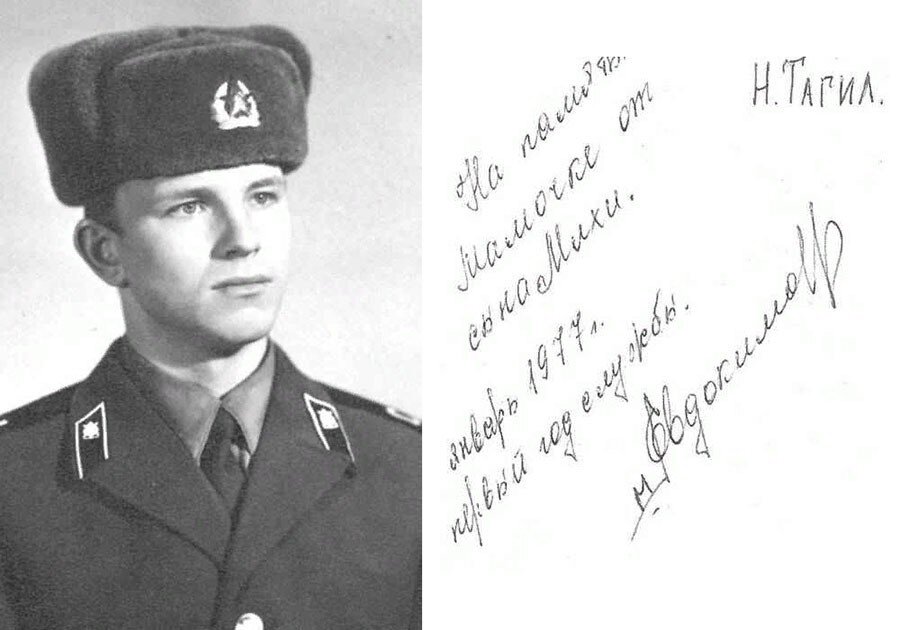 Н. Тагил.
На память
мамочке от
сына Михи.
январь 1977 г.
первый год службы.
М Евдокимов